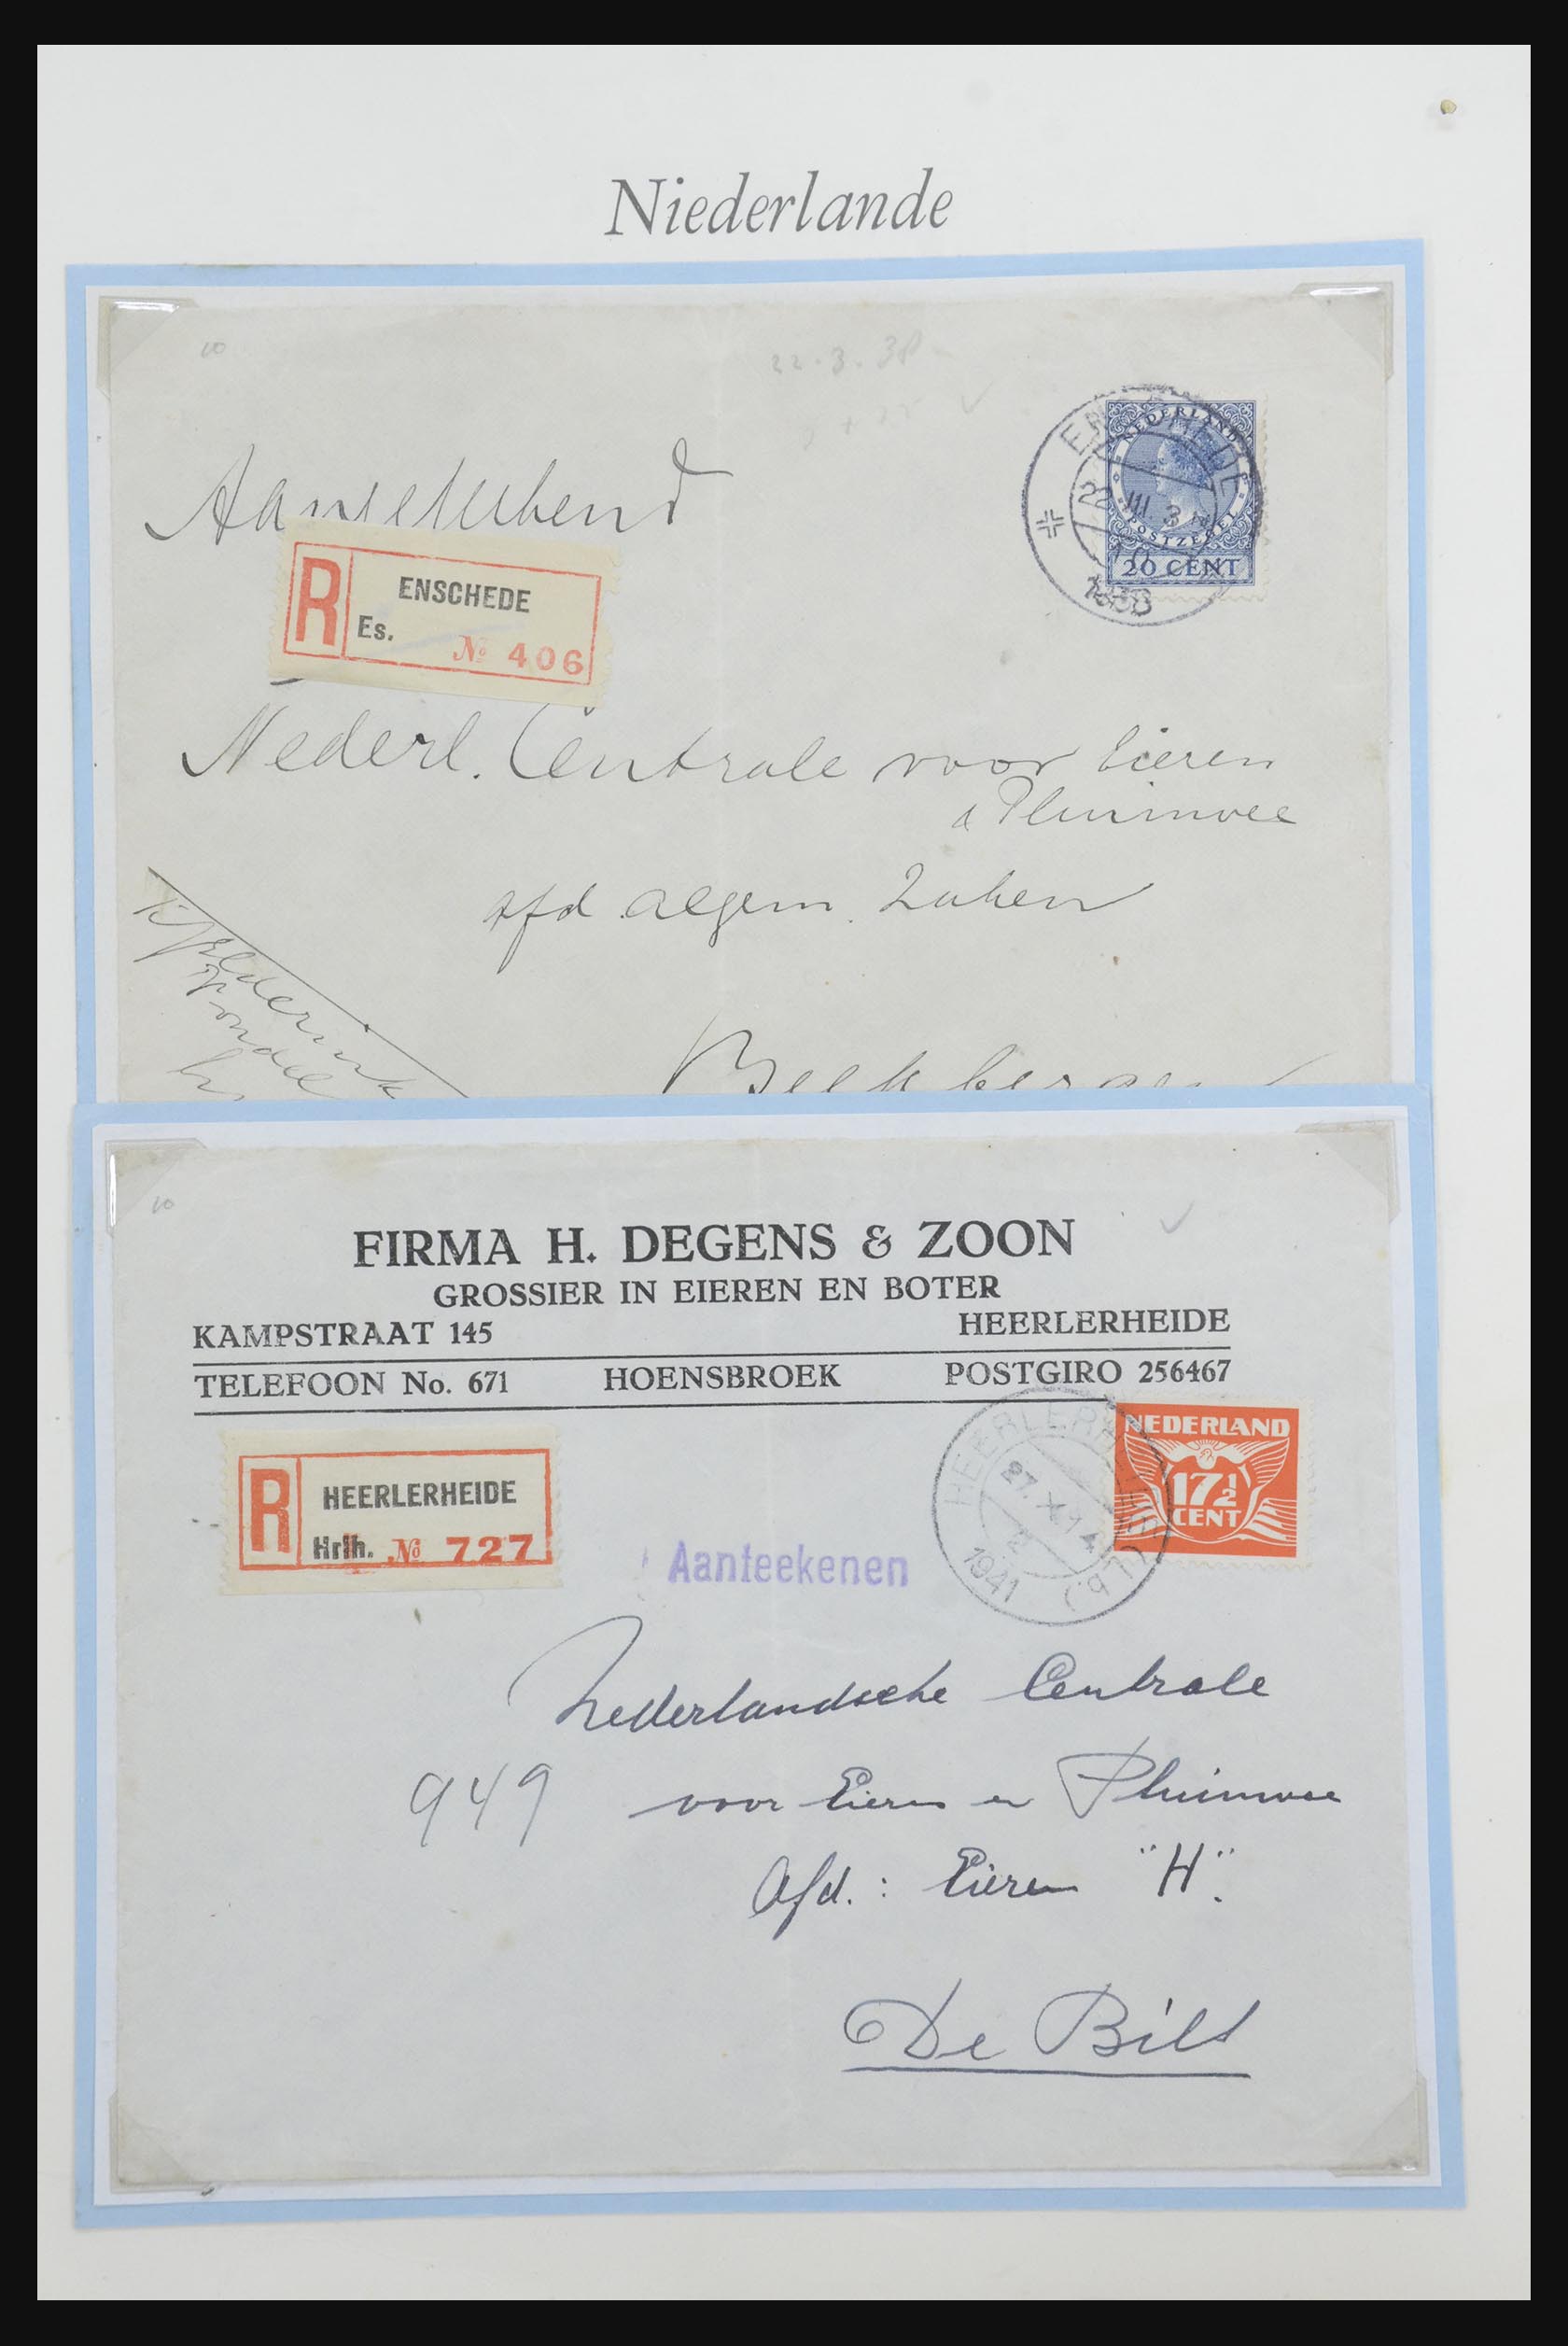 Niederlande
22.3.38
Aangetekend
NEDERLAND
POSTZEGEL
20 CENT
ENSCHEDE
22 III 3
1938
R
ENSCHEDE
Es.
№ 406
Nederl. Centrale voor Eieren
& Pluimvee
afd. algem. Zaken
Beekbergen
FIRMA H. DEGENS & ZOON
GROSSIER IN EIEREN EN BOTER
KAMPSTRAAT 145 HEERLERHEIDE
TELEFOON No. 671 HOENSBROEK POSTGIRO 256467
R
HEERLERHEIDE
Hrlh. № 727
Aanteekenen
HEERLERHEIDE (Lb.)
27. X. 14
1941
NEDERLAND
17½
CENT
Nederlandsche Centrale
949 voor Eieren en Pluimvee
Afd.: Eieren "H".
De Bilt